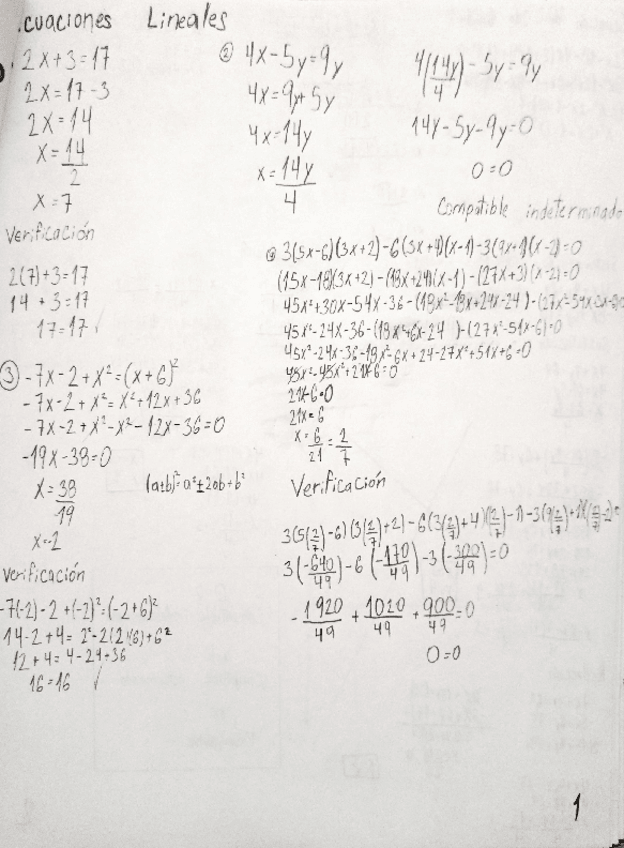 .cuaciones Lineales
2x+3=17
2x=17-3
2x=14
x=14/2
x=7
Verificación
2(7)+3=17
14+3=17
17=17✓
② 4x-5y=9y
4x=9y+5y
4x=14y
x=14y/4
4(14y/4)-5y=9y
14y-5y-9y=0
0=0
Compatible indeterminado
③ -7x-2+x²=(x+6)²
-7x-2+x²=x²+12x+36
-7x-2+x²-x²-12x-36=0
-19x-38=0
x=38/19
x=-2
(a±b)²=a²±2ab+b²
Verificación
-7(-2)-2+(-2)²=(-2+6)²
14-2+4=2²-2(2)(6)+6²
12+4=4-24+36
16=16 ✓
3(5x-6)(3x+2)-6(3x+4)(x-1)-3(9x+1)(x-2)=0
(15x-18)(3x+2)-(18x+24)(x-1)-(27x+3)(x-2)=0
45x²+30x-54x-36-(18x²-18x+24x-24)-(27x²-54x
45x²-24x-36-(18x²+6x-24)-(27x²-51x-6)=0
45x²-24x-36-18x²-6x+24-27x²+51x+6=0
45x²-45x²+21x-6=0
21x-6=0
21x=6
x=6/21=2/7
Verificación
3(5(2/7)-6)(3(2/7)+2)-6(3(2/7)+4)(2/7-1)-3(9(2/7)+1)(2/7-2)=
3(-640/49)-6(-170/49)-3(-300/49)=0
-1920/49+1020/49+900/49=0
0=0
1